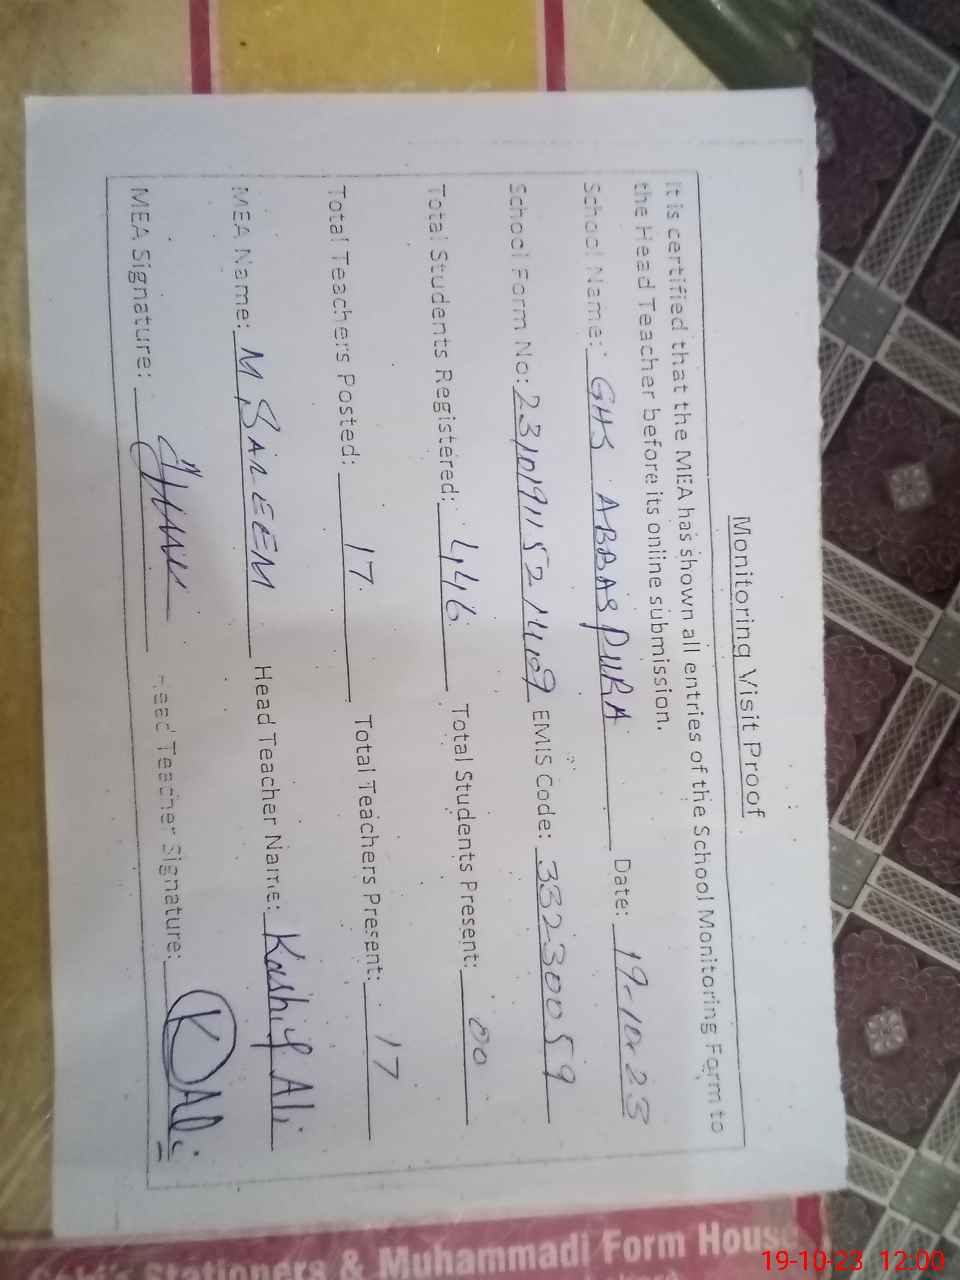 Monitoring Visit Proof
It is certified that the MEA has shown all entries of the School Monitoring Form to
the Head Teacher before its online submission.
School Name: GHS ABBAS PURA Date: 19-10-23
School Form No: 231019115214109 EMIS Code: 33230059
Total Students Registered: 446 Total Students Present: 00
Total Teachers Posted: 17 Total Teachers Present: 17
MEA Name: M SALEEM Head Teacher Name: Kashif Ali
MEA Signature: Head Teacher Signature: K Ali
& Muhammadi Form House
19-10-23 12:00